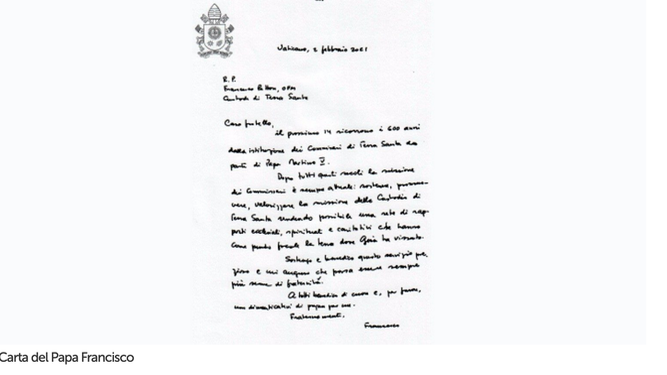 Vaticano, 2 febbraio 2021
R. P.
Francesco Patton, OFM
Custode di Terra Santa
Caro fratello,
il prossimo 14 ricorrono i 600 anni
dalla istituzione dei Commissari di Terra Santa da
parte di Papa Martino V.
Dopo tutti questi secoli la missione
dei Commissari è sempre attuale: sostenere, promuo-
vere, valorizzare la missione della Custodia di
Terra Santa rendendo possibile una rete di rap-
porti ecclesiali, spirituali e caritativi che hanno
come punto focale la terra dove Gesù ha vissuto.
Sostengo e benedico questo servizio pre-
zioso e mi auguro che possa essere sempre
più seme di fraternità.
A tutti benedico di cuore e, per favore,
non dimenticatevi di pregare per me.
Fraternamente,
Francesco
Carta del Papa Francisco